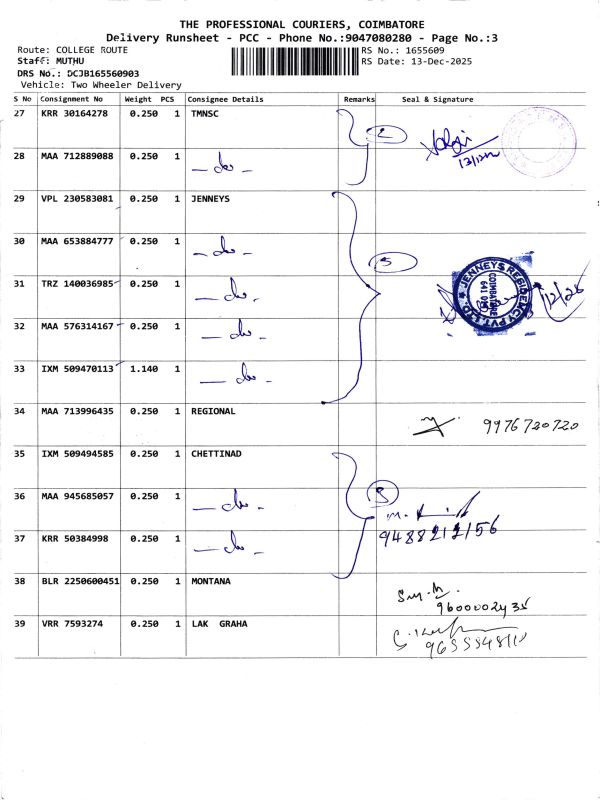 THE PROFESSIONAL COURIERS, COIMBATORE
Delivery Runsheet - PCC - Phone No.:9047080280 - Page No.:3
Route: COLLEGE ROUTE
Staff: MUTHU
DRS No.: DCJB165560903
Vehicle: Two Wheeler Delivery
RS No.: 1655609
RS Date: 13-Dec-2025
S No Consignment No Weight PCS Consignee Details Remarks Seal & Signature
27 KRR 30164278 0.250 1 TMNSC 2
13/12/
28 MAA 712889088 0.250 1 — do —
29 VPL 230583081 0.250 1 JENNEYS
30 MAA 653884777 0.250 1 — do — 5
31 TRZ 140036985 0.250 1 — do —
JENNEYS RESIDENCY PVT. LTD.
COIMBATORE
12/25
32 MAA 576314167 0.250 1 — do —
33 IXM 509470113 1.140 1 — do —
34 MAA 713996435 0.250 1 REGIONAL 9976720720
35 IXM 509494585 0.250 1 CHETTINAD
36 MAA 945685057 0.250 1 — do — 3
37 KRR 50384998 0.250 1 — do — 9488212156
38 BLR 2250600451 0.250 1 MONTANA
9600002435
39 VRR 7593274 0.250 1 LAK GRAHA